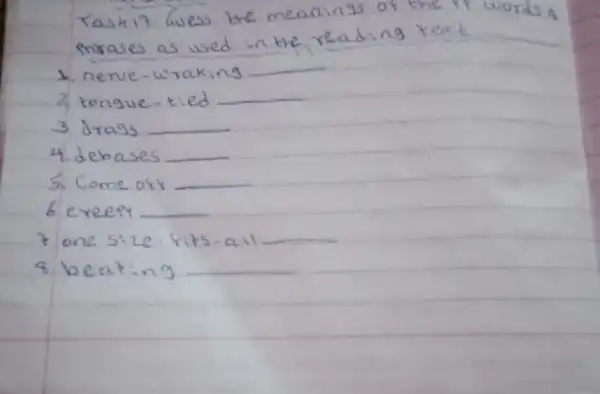 Task 17 Guess the meanings of the ff words &
phrases as used in the reading text
1. nerve-wraking
2. tongue-tied
3 drags
4. debases
5. Come off
6 creepy
7 one size-fits-all
8 beating